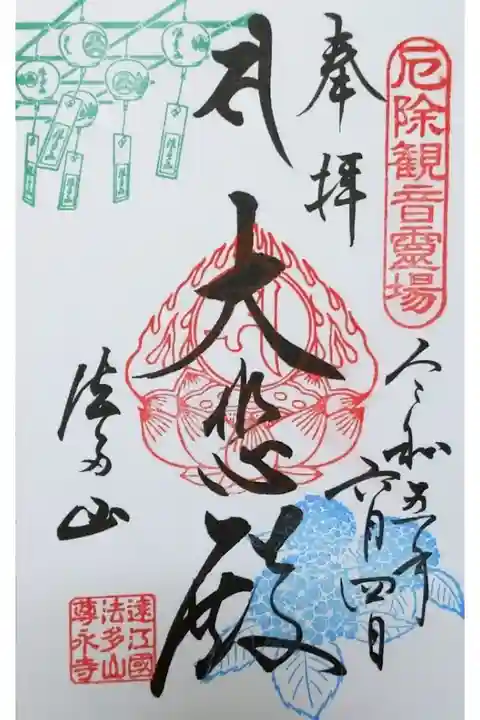 厄除観音霊場
奉拝
令和五年
六月四日
大悲殿
法多山
遠江國
法多山
尊永寺